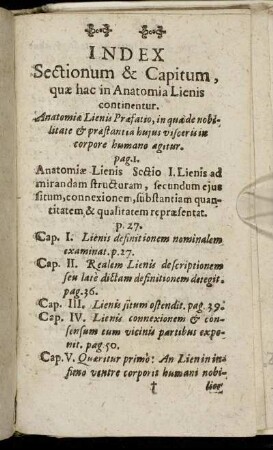 INDEX
Sectionum & Capitum,
quæ hac in Anatomia Lienis
continentur.
Anatomiæ Lienis Præfatio, in quâ de nobi-
litate & præstantia hujus visceris in
corpore humano agitur.
pag.1.
Anatomiæ Lienis Sectio I. Lienis ad
mirandam structuram, secundum ejus
situm, connexionem, substantiam quan-
titatem, & qualitatem repræsentat.
p. 27.
Cap. I. Lienis definitionem nominalem
examinat. p. 27.
Cap. II. Realem Lienis descriptionem
seu latè dictam definitionem detegit.
pag. 36.
Cap. III. Lienis situm ostendit. pag. 39.
Cap. IV. Lienis connexionem & con-
sensum cum vicinis partibus expo-
nit. pag. 50.
Cap. V. Quæritur primò: An Lien in in-
fimo ventre corporis humani nobi-
† lior